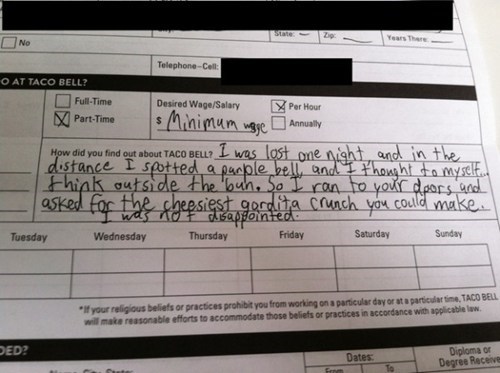 State:
Zip:
Years There:
No
Telephone-Cell:
O AT TACO BELL?
Full-Time
Part-Time
Desired Wage/Salary
$ Minimum wage
Per Hour
Annually
How did you find out about TACO BELL? I was lost one night and in the
distance I spotted a purple bell, and I thought to myself...
think outside the bun. So I ran to your doors and
asked for the cheesiest gordita crunch you could make.
I was not disappointed.
Tuesday Wednesday Thursday Friday Saturday Sunday
*If your religious beliefs or practices prohibit you from working on a particular day or at a particular time, TACO BELL
will make reasonable efforts to accommodate those beliefs or practices in accordance with applicable law.
DED?
Dates:
Diploma or
Degree Receive
From
To